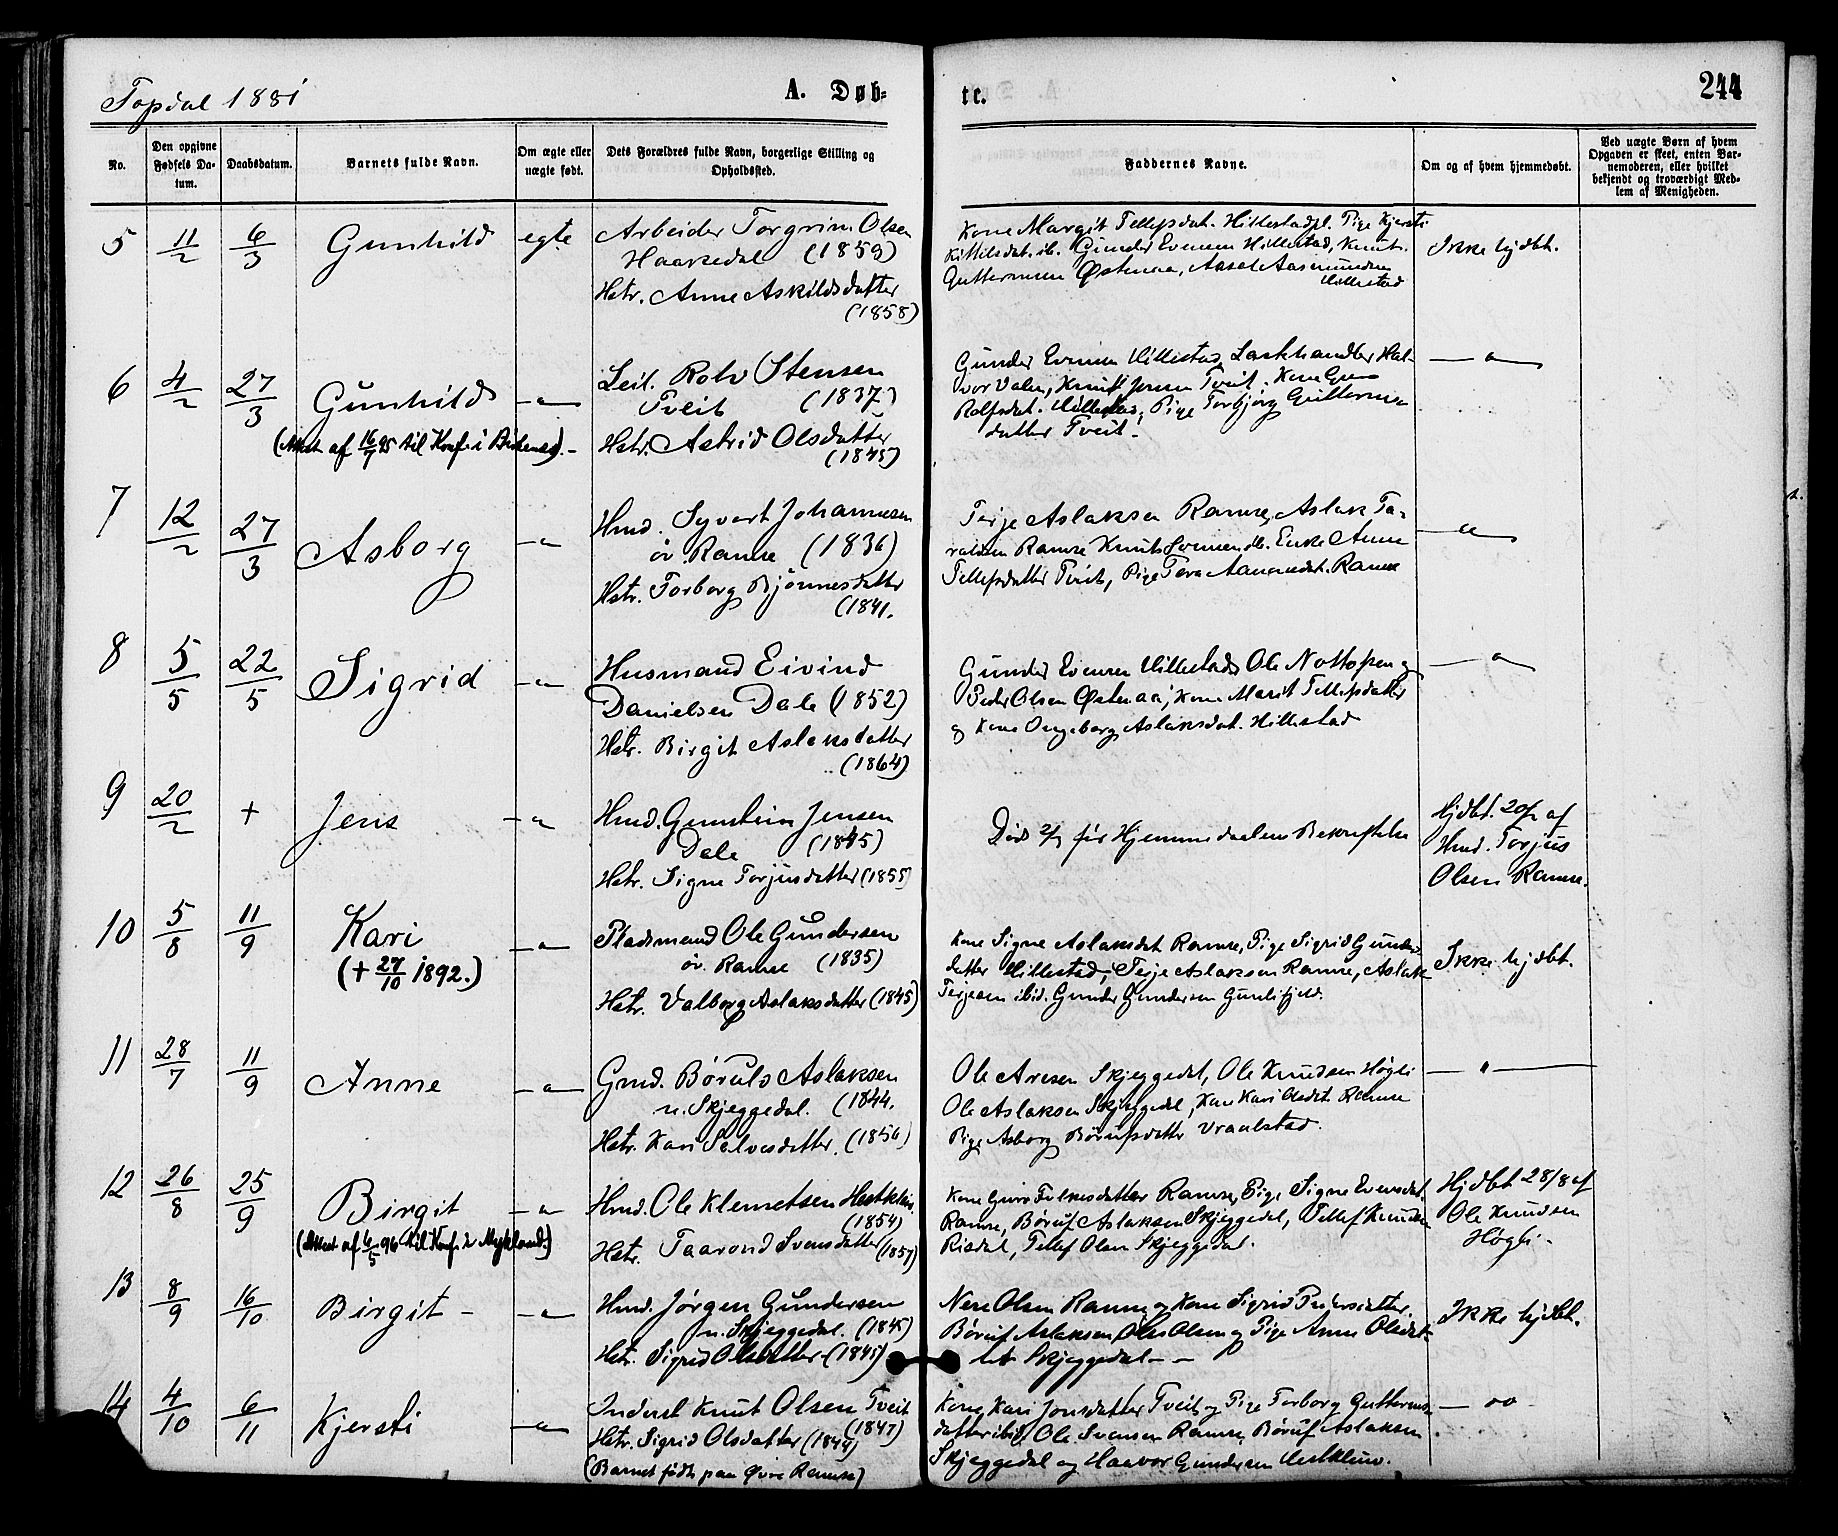 Topdal 1881
A. Døb-
te.
244
No.
Den opgivne
Fødsels Da-
tum.
Daabsdatum.
Barnets fulde Navn.
Om ægte eller
uægte født.
Dets Forældres fulde Navn, borgerlige Stilling og
Opholdssted.
Faddernes Navne.
Om og af hvem hjemmedøbt.
Ved uægte Børn af hvem
Opgaven er skeet, enten Bar-
nemoderen, eller hvilket
bekjendt og troværdigt Med-
lem af Menigheden.
5 11/2 6/3 Gunhild egte
Arbeider Torgrim Olsen
Haaresdal (1859)
Hstr. Anne Askildsdatter
(1858)
Kone Margit Tellefsdat. Hillestad, Pige Kjersti
Kittilsdat. ib. Gunder Evensen Hillestad, Knut
Guttormsen Østenaa, Aasmundsen
Hillestad
Ikke hjdbt.
6 4/2 27/3 Gunhild —"—
(Attest af 16/7 95 til Konf. i Birkenes).-
Leil. Rolv Stensen
Tveit (1837)
Hstr. Astrid Olsdatter
(1845)
Gunder Evensen Hillestad, Landhandler Hal-
vor Valen, Knut Jensen Tveit. Kone
Rolfsdat. Hillestad, Pige Torbjørg Guttorms-
datter Tveit.
—"—
7 12/2 27/3 Asborg —"—
Hmd. Syvert Johannesen
øv. Ramse (1836)
Hstr. Torborg Bjønnesdatter
(1841.
Terje Aslaksen Ramse, Aslak Ta-
raldsen Ramse Knut Svensen ib. Enke Anne
Tellefsdatter Tveit, Pige Tora Ramse
—"—
8 5/5 22/5 Sigrid —"—
Husmand Eivind
Danielsen Dale (1852)
Hstr. Birgit Aslaksdatter
(1864)
Gunder Evensen Hillestad, Ole Nottosen og
Peder Olsen Østenaa, Kone Marit Tellefsdatter
og Kone Ingeborg Aslaksdat. Hillestad
—"—
9 20/2 + Jens —"—
Hmd. Gunstein Jensen
Dale (1845)
Hstr. Signe Torjusdatter (1855)
Død før Hjemmedaabens Bekræftelse
Hjdbt. 20/2 af
Hmd. Torjus
Olsen Ramse.
10 5/8 11/9 Kari —"—
(+ 27/10 1892.)
Pladsmand Ole Gundersen
øv. Ramse (1835)
Hstr. Valborg Aslaksdatter (1845)
Kone Signe Aslaksdat Ramse, Pige Sigrid Gunder-
datter Hillestad, Terje Aslaksen Ramse, Aslak
Terjesen ibid. Gunder Gundersen
Ikke hjdbt.
11 28/7 11/9 Anne —"—
Gmd. Børuls Aslaksen
n. Skjeggedal. (1844.
Hstr. Kari Salvesdatter. (1856)
Ole Aresen Skjeggedal, Ole Knudsen Høgli
Ole Aslaksen Skjeggedal, Kone Kari Olsdat. Ramse
Pige Asborg Børufsdatter Vraalstad.
—"—
12 26/8 25/9 Birgit —"—
(Attest af 6/5 96 til Konf. i Mykland.)
Hmd. Ole Klemetsen Hestkleiv.
(1854)
Hstr. Taarond Svensdatter (1857)
Kone Guro Folkesdatter Ramse, Pige Signe Evensdat.
Ramse, Børuf Aslaksen Skjeggedal, Tellef Knudsen
Risdal, Tellef Olsen Skjeggedal.
Hjdbt 28/8 af
Ole Knudsen
Høgli.
13 8/9 16/10 Birgit —"—
Hmd. Jørgen Gundersen
n. Skjeggedal. (1845)
Hstr. Sigrid Olsdatter (1845)
Olsen Ramse og Kone Sigrid Pedersdatter.
Børuf Aslaksen, Olsen og Pige Anne Olsdat-
Skjeggedal — —
Ikke hjdbt.
14 4/10 6/11 Kjersti —"—
Inderst Knut Olsen Tveit
(1847)
Hstr. Sigrid Olsdatter (1844)
(Barnet født paa Øvre Ramse)
Kone Kari Jonsdatter Tveit og Pige Torborg Guttorms-
datter ibid, Ole Svensen Ramse, Børuf Aslaksen
Skjeggedal og Haavor Gundersen Hestkleiv.
—"—